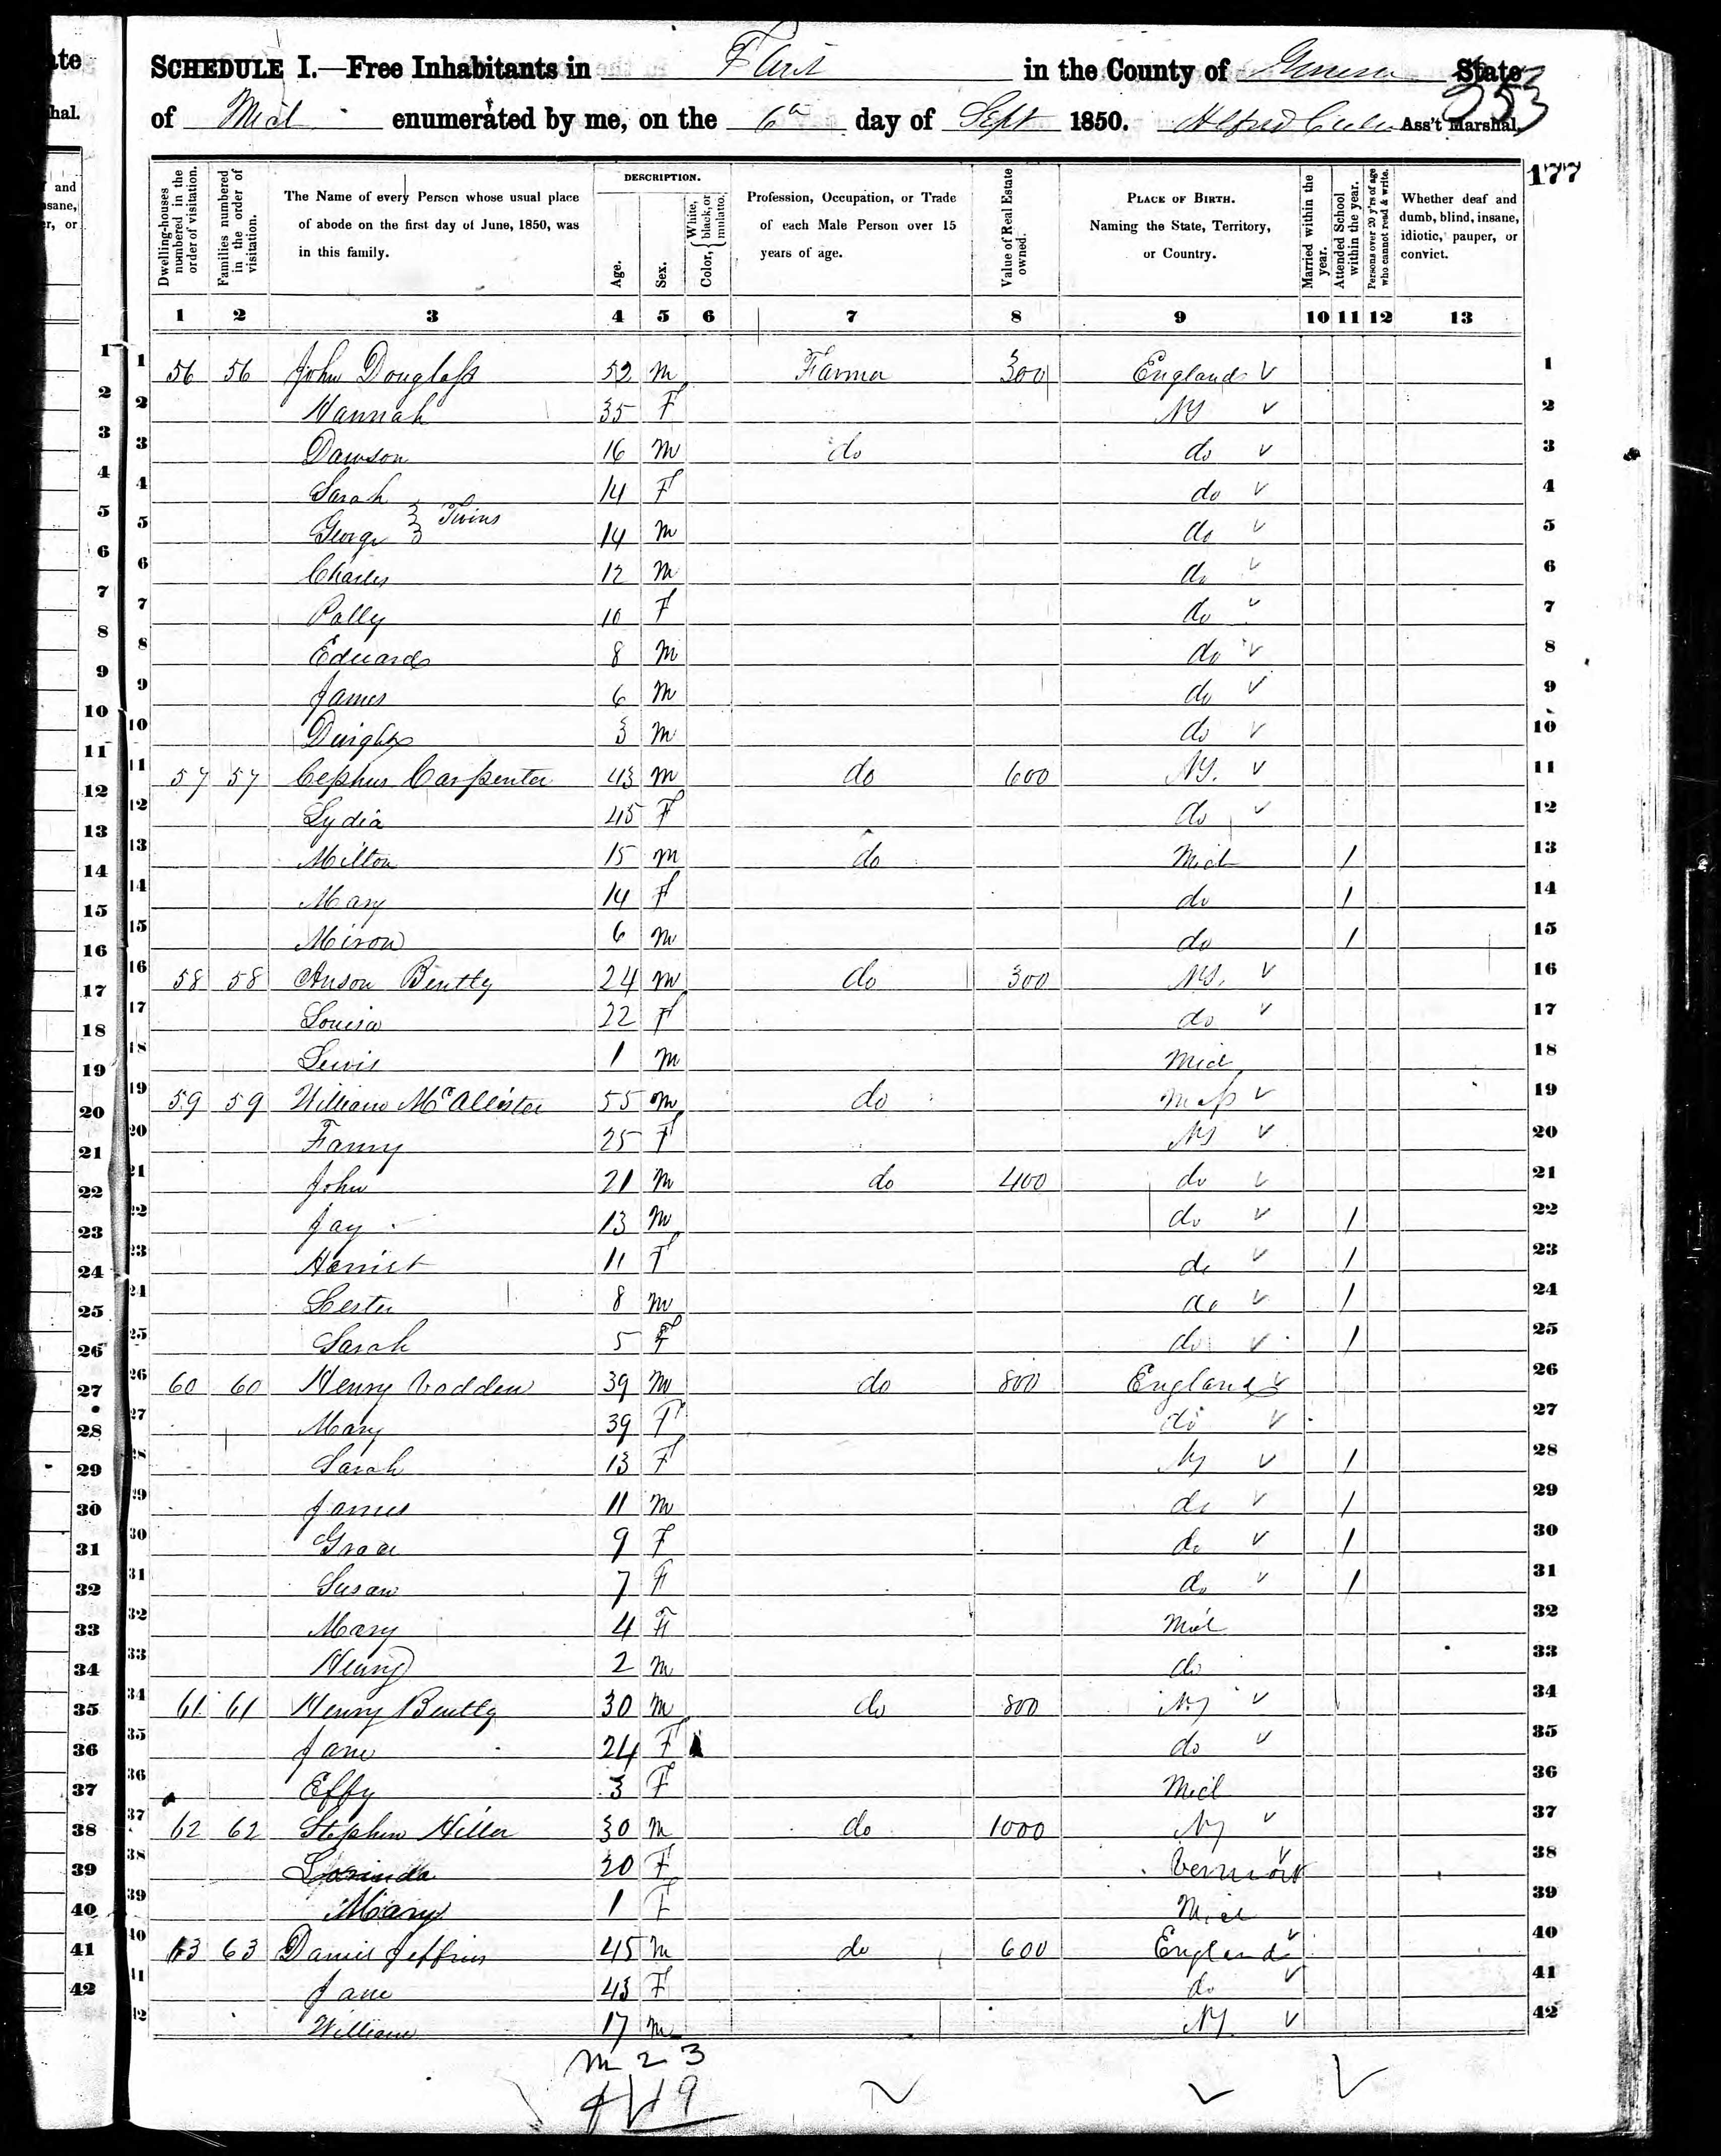 SCHEDULE I.—Free Inhabitants in Flint in the County of Genesee State
of Mich enumerated by me, on the 6th day of Sept 1850. Alfred Ass't Marshal.
253
177
Dwelling-houses numbered in the order of visitation.
Families numbered in the order of visitation.
The Name of every Person whose usual place of abode on the first day of June, 1850, was in this family.
DESCRIPTION.
Age.
Sex.
Color, { White, black, or mulatto.
Profession, Occupation, or Trade of each Male Person over 15 years of age.
Value of Real Estate owned.
PLACE OF BIRTH. Naming the State, Territory, or Country.
Married within the year.
Attended School within the year.
Persons over 20 y'rs of age who cannot read & write.
Whether deaf and dumb, blind, insane, idiotic, pauper, or convict.
1 2 3 4 5 6 7 8 9 10 11 12 13
1 56 56 John Douglass 52 M Farmer 300 England 1
2 Hannah 35 F NY 2
3 Dawson 16 M do do 3
4 Sarah 14 F do 4
Twins
5 George 14 M do 5
6 Charles 12 M do 6
7 Polly 10 F do 7
8 Edward 8 M do 8
9 James 6 M do 9
10 Dwight 3 M do 10
11 57 57 Cephus Carpenter 43 M do 600 NY. 11
12 Lydia 45 F do 12
13 Milton 15 M do Mich / 13
14 Mary 14 F do / 14
15 Miron 6 M do / 15
16 58 58 Anson Bently 24 M do 300 NY. 16
17 Louisa 22 F do 17
18 Lewis 1 M Mich 18
19 59 59 William McAllister 55 M do Mass 19
20 Fanny 25 F NY 20
21 John 21 M do 400 do 21
22 Jay 13 M do / 22
23 Harriet 11 F do / 23
24 Lester 8 M do / 24
25 Sarah 5 F do / 25
26 60 60 Henry 39 M do 800 England 26
27 Mary 39 F do 27
28 Sarah 13 F NY / 28
29 James 11 M do / 29
30 Grace 9 F do / 30
31 Susan 7 F do / 31
32 Mary 4 F Mich 32
33 Henry 2 M do 33
34 61 61 Henry Bently 30 M do 800 NY 34
35 Jane 24 F do 35
36 Effy 3 F Mich 36
37 62 62 Stephen Hiller 30 M do 1000 NY 37
38 Lorinda 20 F Vermont 38
39 Mary 1 F Mich 39
40 63 63 Daniel Jeffries 45 M do 600 England 40
41 Jane 43 F do 41
42 William 17 M NY 42
M 23
F 19